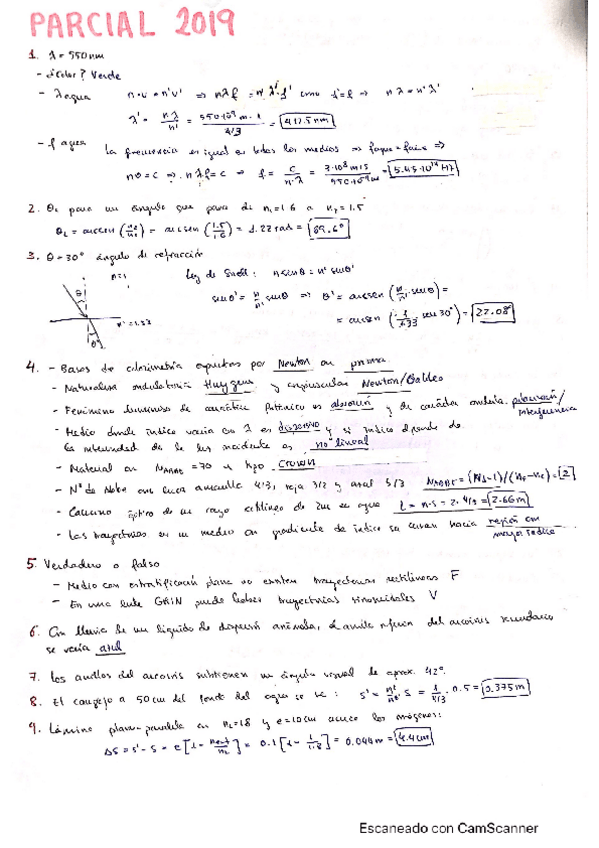 PARCIAL 2019
1. λ = 550nm
- ¿Color? Verde
- λagua n·v = n'v' ⇒ nλf = n'λ'·f' como f'=f ⇒ nλ = n'λ'
λ' = nλ/n' = 550·10⁻⁹m·1 / 4/3 = 412.5 nm
- f agua La frecuencia es igual en todos los medios ⇒ fagua = faire ⇒
nv = c ⇒ nλf = c ⇒ f = c/n·λ = 3·10⁸ m/s / 550·10⁻⁹m = 5.45·10¹⁴ Hz
2. θL para un ángulo que pasa de n1=1.6 a n2=1.5
θL = arcsen (n2/n1) = arcsen (1.5/1.6) = 1.22 rad = 69.6°
3. θ = 30° ángulo de refracción
n=1 Ley de Snell: n senθ = n' senθ'
θ senθ' = n/n' senθ ⇒ θ' = arcsen (n/n' · senθ) =
n' = 1.33 = arcsen (1/1.33 · sen 30°) = 22.08°
θ'
4. - Bases de colorimetría expuestas por Newton con prisma
- Naturaleza ondulatoria Huygens y corpuscular Newton/Galileo
- Fenómeno luminoso de carácter fotónico es absorción y de carácter ondulat. polarización/
interferencia
- Medio donde índice varía con λ es dispersivo y si índice depende de
la intensidad de la luz incidente es no lineal
- Material con NABBE = 70 es tipo Crown
- Nº de Abbe con luces amarilla 4/3, roja 3/2 y azul 5/3 NABBE = (Nd-1)/(NF-nc) = 2
- Camino óptico de un rayo rectilíneo de 2m en agua L = n·s = 2·4/3 = 2.66m
- Las trayectorias en un medio con gradiente de índice se curvan hacia región con
mayor índice
5. Verdadero o falso
- Medio con estratificación plana no existen trayectorias rectilíneas F
- En una lente GRIN puede haber trayectorias sinusoidales V
6. Con lluvia de un líquido de dispersión anómala, la región del arcoiris secundario
se vería azul
7. Los anillos del arcoiris subtienen un ángulo visual de aprox. 42°.
8. El cangrejo a 50cm del fondo del agua se ve: s' = n'/n · s = 1/4/3 · 0.5 = 0.375m
9. Lámina plano-paralela con nL=1.8 y e=10cm acerca las imágenes:
Δs = s' - s = e[1 - /nL] = 0.1[1 - 1/1.8] = 0.044m = 4.4cm
Escaneado con CamScanner